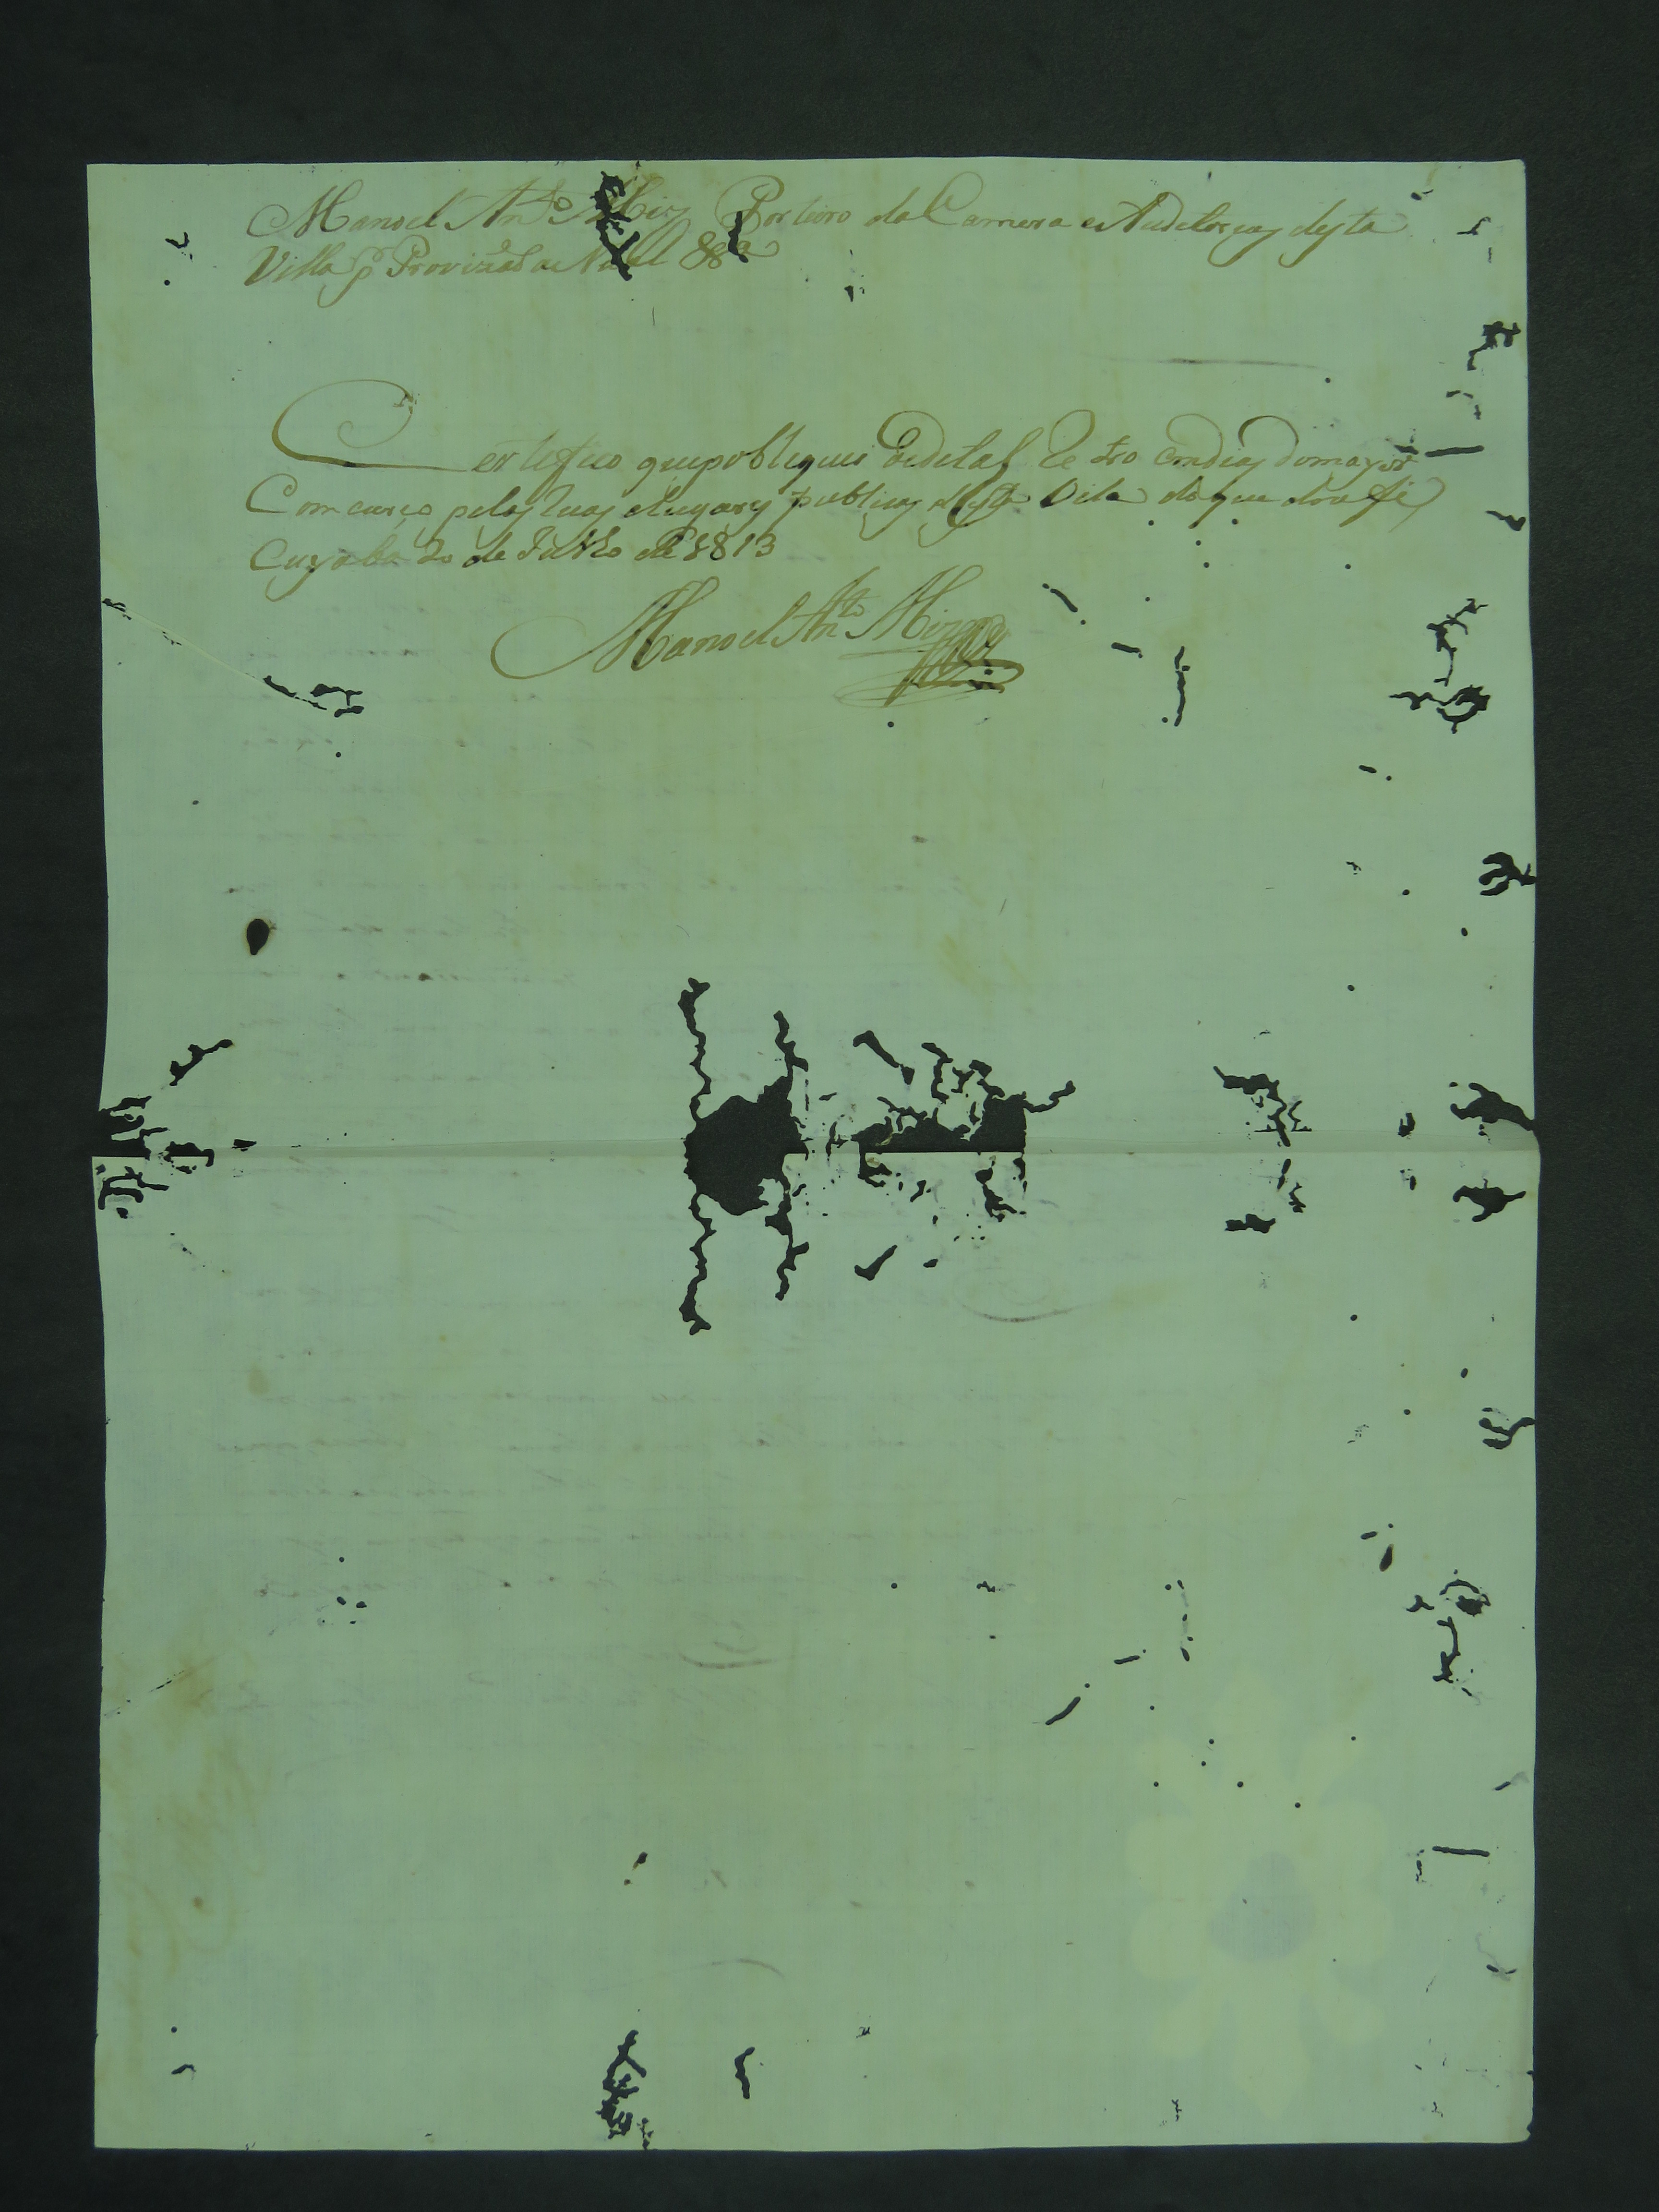 Manoel An.to Miz Porteiro da Camera e Auditorios desta
Villa p.r Provizaõ &a
Certefico que publiquei o edital Retro em dias do mayor
Comcurço pelas Ruas e Lugares publicos desta Vila do que dou fé
Cuyaba 20 de Julho de 1813
Manoel An.to Miz